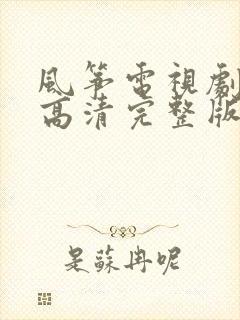 風筝電視劇
高清完整版
是蘇冉呢